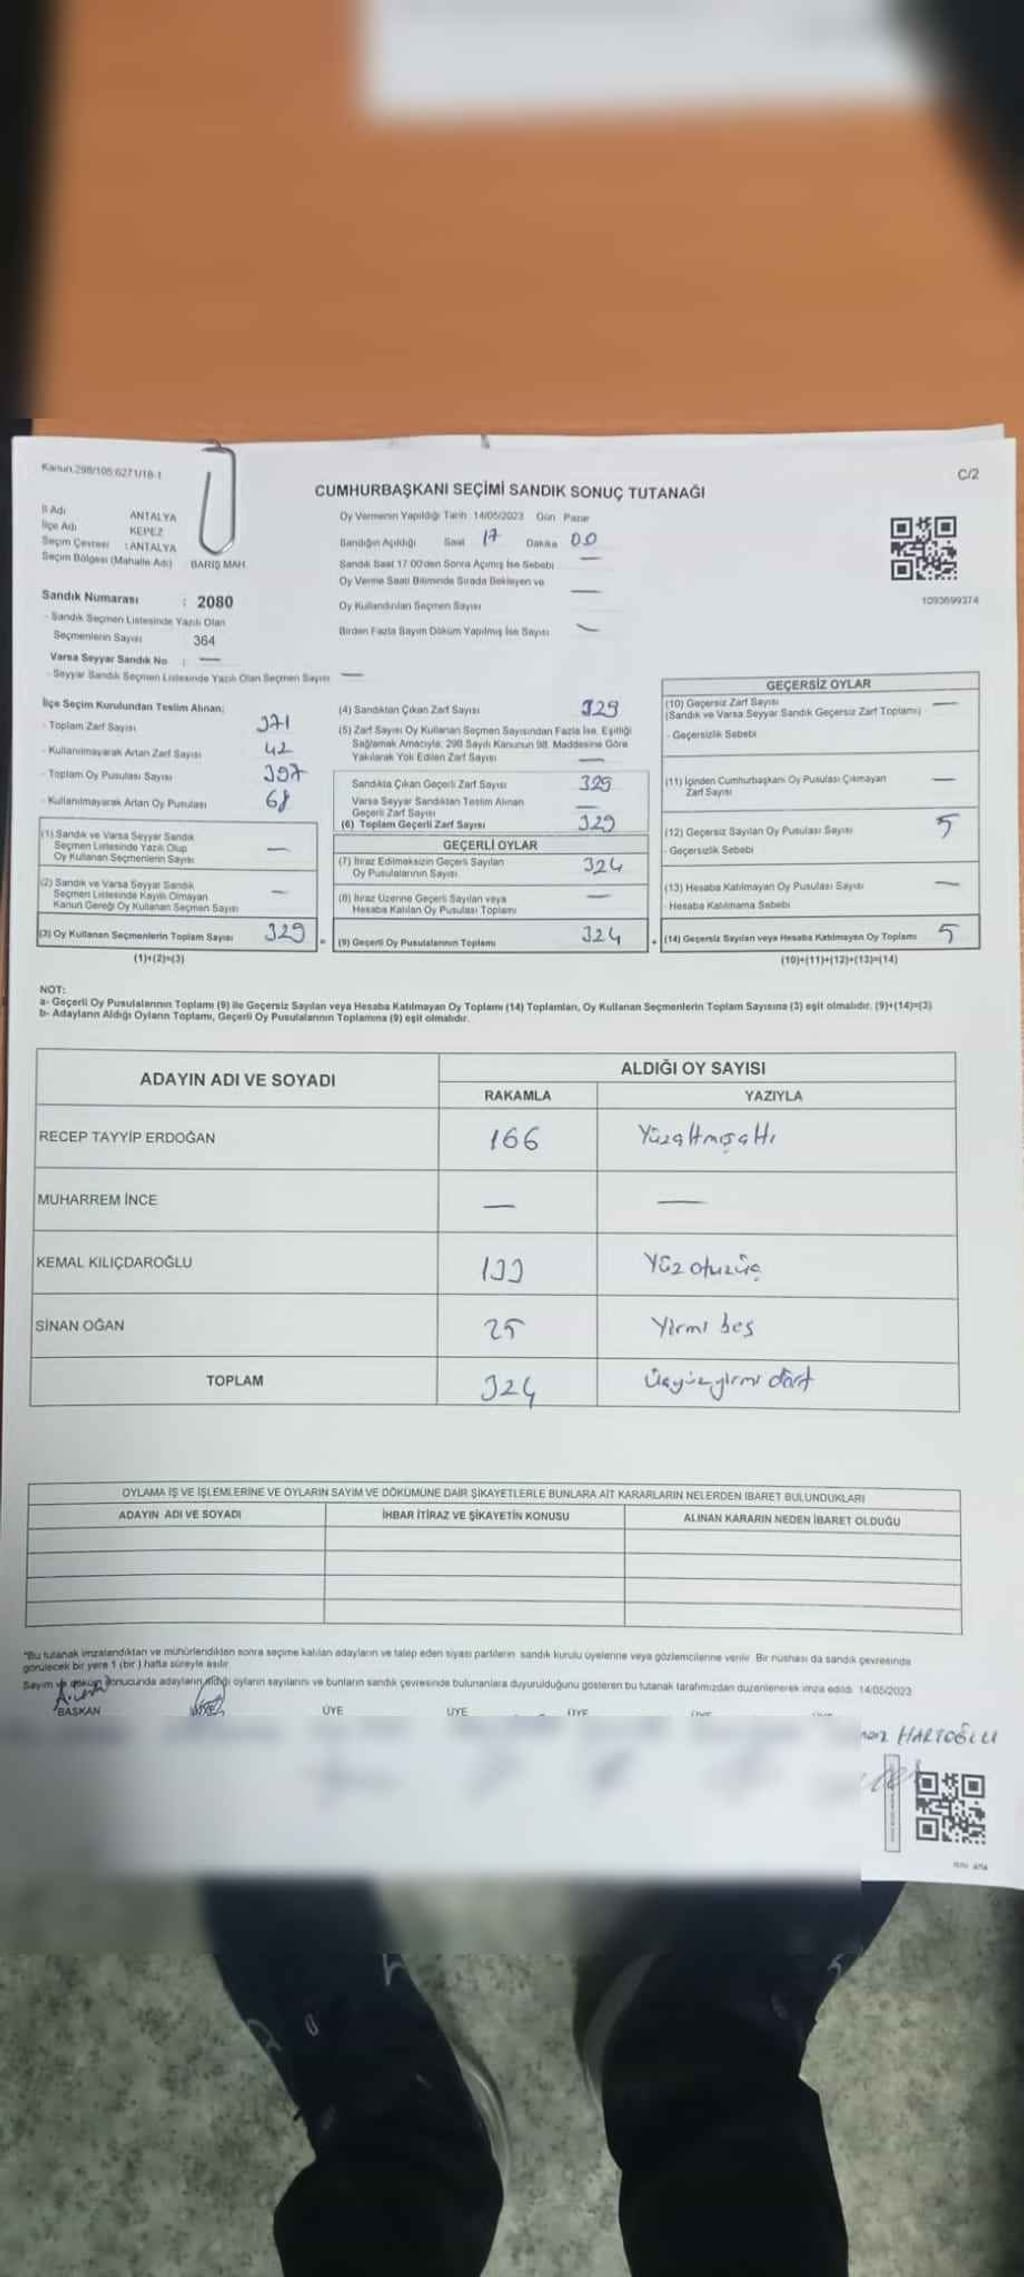 Kanun.298/105;6271/18-1
C/2
CUMHURBAŞKANI SEÇİMİ SANDIK SONUÇ TUTANAĞI
İl Adı ANTALYA
İlçe Adı KEPEZ
Seçim Çevresi : ANTALYA
Seçim Bölgesi (Mahalle Adı) BARIŞ MAH.
Sandık Numarası : 2080
- Sandık Seçmen Listesinde Yazılı Olan
Seçmenlerin Sayısı 364
Varsa Seyyar Sandık No : —
- Seyyar Sandık Seçmen Listesinde Yazılı Olan Seçmen Sayısı —
Oy Vermenin Yapıldığı Tarih 14/05/2023 Gün Pazar
Sandığın Açıldığı Saat 17 Dakika 00
Sandık Saat 17.00'den Sonra Açılmış İse Sebebi —
Oy Verme Saati Bitiminde Sırada Bekleyen ve
Oy Kullandırılan Seçmen Sayısı —
Birden Fazla Sayım Döküm Yapılmış İse Sayısı —
1093699374
İlçe Seçim Kurulundan Teslim Alınan;
- Toplam Zarf Sayısı 371
- Kullanılmayarak Artan Zarf Sayısı 42
- Toplam Oy Pusulası Sayısı 397
- Kullanılmayarak Artan Oy Pusulası 68
(1) Sandık ve Varsa Seyyar Sandık
Seçmen Listesinde Yazılı Olup
Oy Kullanan Seçmenlerin Sayısı —
(2) Sandık ve Varsa Seyyar Sandık
Seçmen Listesinde Kayıtlı Olmayan
Kanun Gereği Oy Kullanan Seçmen Sayısı —
(3) Oy Kullanan Seçmenlerin Toplam Sayısı 329
(1)+(2)=(3)
(4) Sandıktan Çıkan Zarf Sayısı 329
(5) Zarf Sayısı Oy Kullanan Seçmen Sayısından Fazla İse, Eşitliği
Sağlamak Amacıyla, 298 Sayılı Kanunun 98. Maddesine Göre
Yakılarak Yok Edilen Zarf Sayısı —
Sandıkta Çıkan Geçerli Zarf Sayısı 329
Varsa Seyyar Sandıktan Teslim Alınan
Geçerli Zarf Sayısı —
(6) Toplam Geçerli Zarf Sayısı 329
GEÇERLİ OYLAR
(7) İtiraz Edilmeksizin Geçerli Sayılan
Oy Pusulalarının Sayısı 324
(8) İtiraz Üzerine Geçerli Sayılan veya
Hesaba Katılan Oy Pusulası Toplamı —
(9) Geçerli Oy Pusulalarının Toplamı 324
GEÇERSİZ OYLAR
(10) Geçersiz Zarf Sayısı —
(Sandık ve Varsa Seyyar Sandık Geçersiz Zarf Toplamı)
- Geçersizlik Sebebi
(11) İçinden Cumhurbaşkanı Oy Pusulası Çıkmayan
Zarf Sayısı —
(12) Geçersiz Sayılan Oy Pusulası Sayısı 5
- Geçersizlik Sebebi
(13) Hesaba Katılmayan Oy Pusulası Sayısı —
- Hesaba Katılmama Sebebi
(14) Geçersiz Sayılan veya Hesaba Katılmayan Oy Toplamı 5
(10)+(11)+(12)+(13)=(14)
NOT:
a- Geçerli Oy Pusulalarının Toplamı (9) ile Geçersiz Sayılan veya Hesaba Katılmayan Oy Toplamı (14) Toplamları, Oy Kullanan Seçmenlerin Toplam Sayısına (3) eşit olmalıdır. (9)+(14)=(3)
b- Adayların Aldığı Oyların Toplamı, Geçerli Oy Pusulalarının Toplamına (9) eşit olmalıdır.
ADAYIN ADI VE SOYADI
ALDIĞI OY SAYISI
RAKAMLA YAZIYLA
RECEP TAYYİP ERDOĞAN 166 Yüzaltmışaltı
MUHARREM İNCE — —
KEMAL KILIÇDAROĞLU 133 Yüz otuzüç
SİNAN OĞAN 25 Yirmi beş
TOPLAM 324 Üçyüzyirmi dört
OYLAMA İŞ VE İŞLEMLERİNE VE OYLARIN SAYIM VE DÖKÜMÜNE DAİR ŞİKAYETLERLE BUNLARA AİT KARARLARIN NELERDEN İBARET BULUNDUKLARI
ADAYIN ADI VE SOYADI İHBAR İTİRAZ VE ŞİKAYETİN KONUSU ALINAN KARARIN NEDEN İBARET OLDUĞU
"Bu tutanak imzalandıktan ve mühürlendikten sonra seçime katılan adayların ve talep eden siyasi partilerin sandık kurulu üyelerine veya gözlemcilerine verilir. Bir nüshası da sandık çevresinde
görülecek bir yere 1 (bir) hafta süreyle asılır.
Sayım ve döküm sonucunda adayların aldığı oyların sayılarını ve bunların sandık çevresinde bulunanlara duyurulduğunu gösteren bu tutanak tarafımızdan düzenlenerek imza edildi. 14/05/2023
BAŞKAN ÜYE ÜYE ÜYE
HARTOĞLU